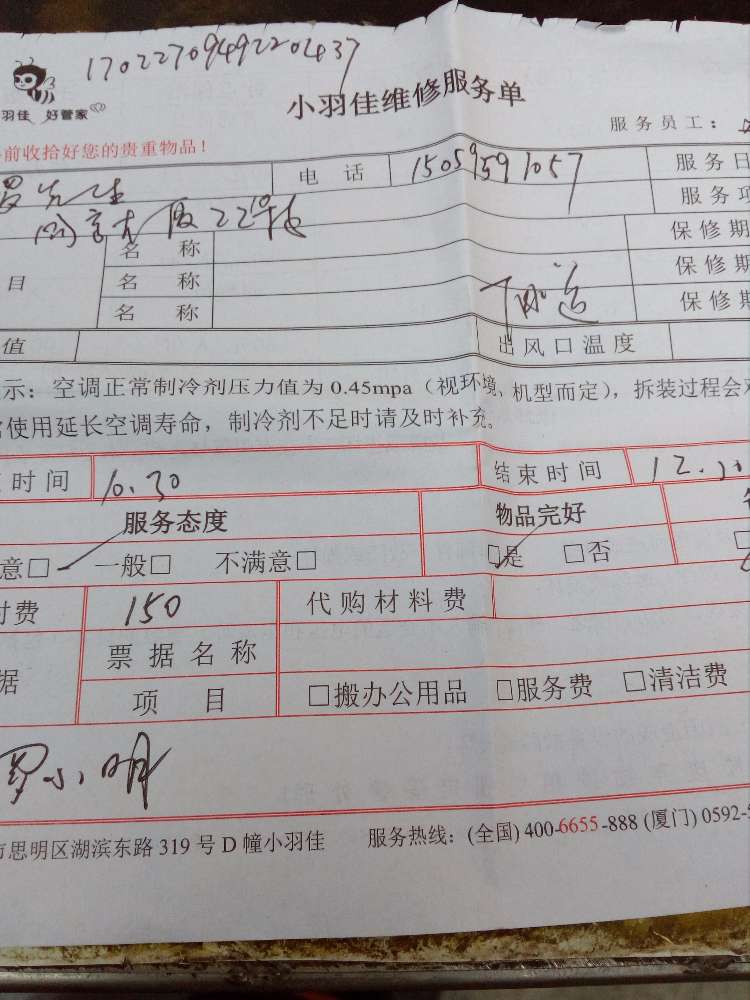 17022709492204437
羽佳 好管家
小羽佳维修服务单
服务员工：
前收拾好您的贵重物品！
罗先生 电话 15059591057 服务日
22 服务项
名称 保修期
目 名称 保修期
名称 保修期
值 出风口温度
示：空调正常制冷剂压力值为 0.45mpa（视环境、机型而定），拆装过程会对
使用延长空调寿命，制冷剂不足时请及时补充。
时间 10.30 结束时间 12.
服务态度 物品完好
意□ 一般□ 不满意□ □是 □否
付费 150 代购材料费
据 票据名称
项目 □搬办公用品 □服务费 □清洁费
罗小明
市思明区湖滨东路 319 号 D 幢小羽佳 服务热线：(全国) 400-6655-888 (厦门) 0592-5